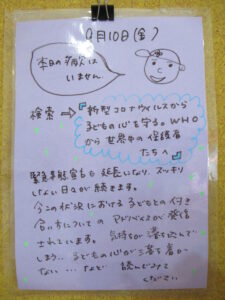 9月10日(金)
本日の病人は
いません。
検索 ⇒ 『新型コロナウイルスから
子どもの心を守る。WHO
から世界中の保護者
たちへ』
緊急事態宣言も延長になり、スッキリ
しない日々が続きます。
今この状況における子どもとの付き
合い方についての アドバイスが発信
されています。
気持ちが落ち込んで
しまう… 子どもの心が落ち着か
ない… など 読んでみて
ください。